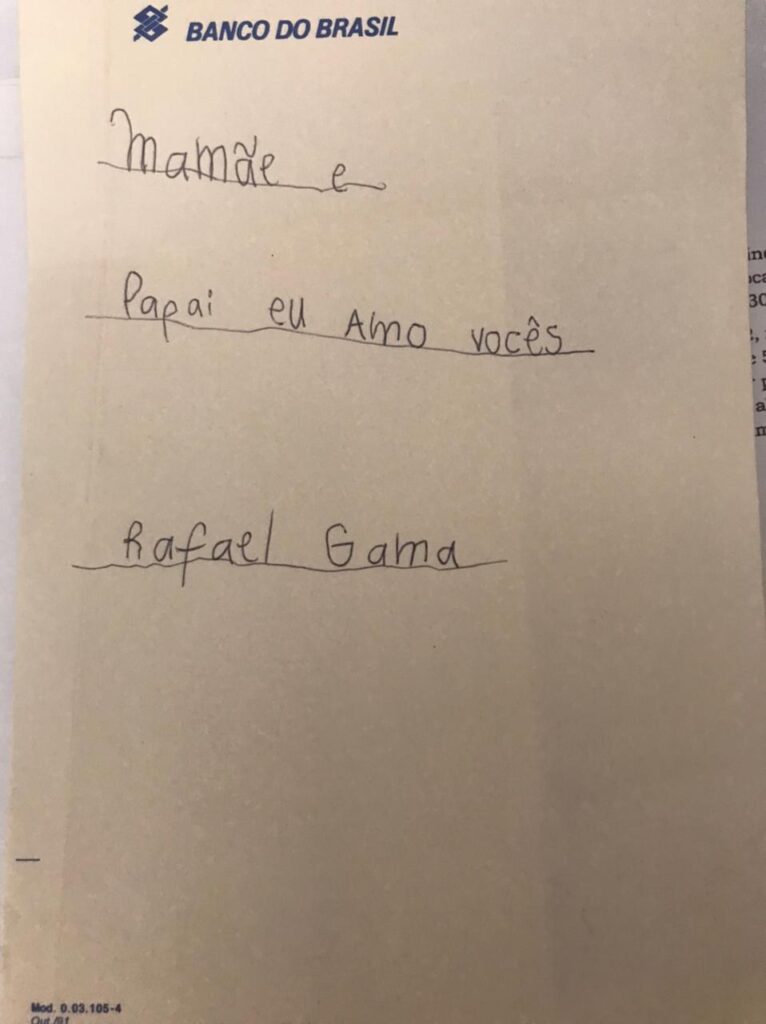 BANCO DO BRASIL
Mamãe e
Papai eu Amo vocês
Rafael Gama
Mod. 0.03.105-4
Out./91